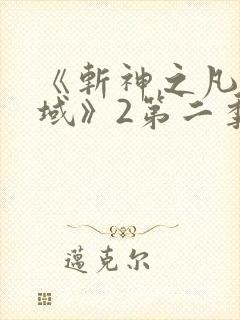 《斬神之凡
域》2第二季
邁克尔